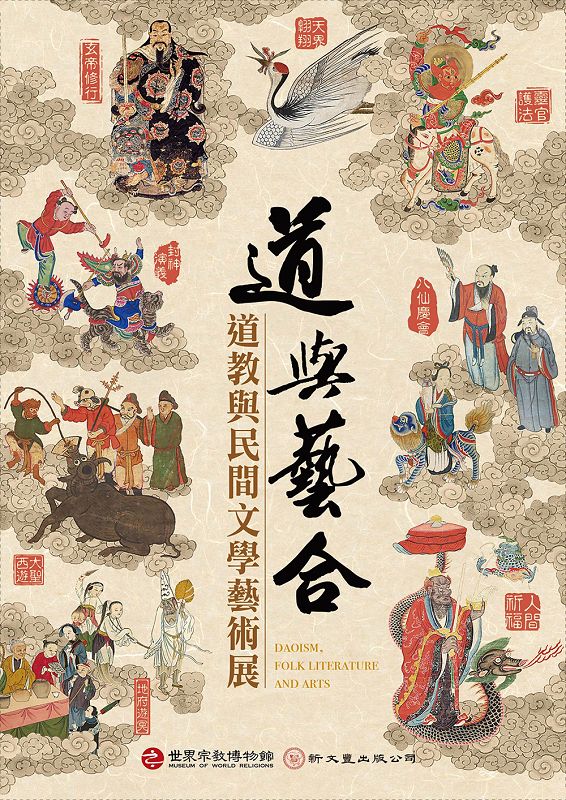 玄帝修行
天界翱翔
靈官護法
封神演義
八仙慶會
道與藝合
道教與民間文學藝術展
DAOISM,
FOLK LITERATURE
AND ARTS
大聖西遊
人間祈福
地府遊冥
世界宗教博物館
MUSEUM OF WORLD RELIGIONS
新文豐出版公司